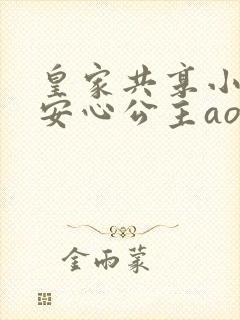 皇家共享小
安心公主ao
金雨蒙